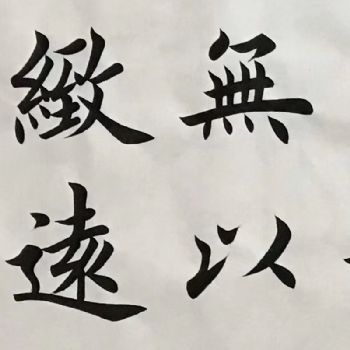 無以
緻遠